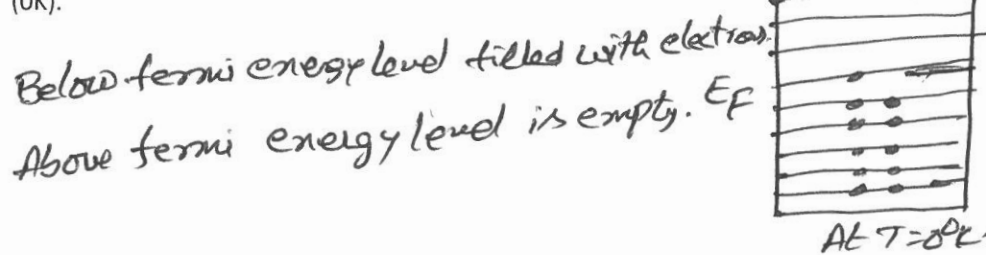 (0K).
Below fermi energy level filled with electrons.
Above fermi energy level is empty. EF
At T=0°K.